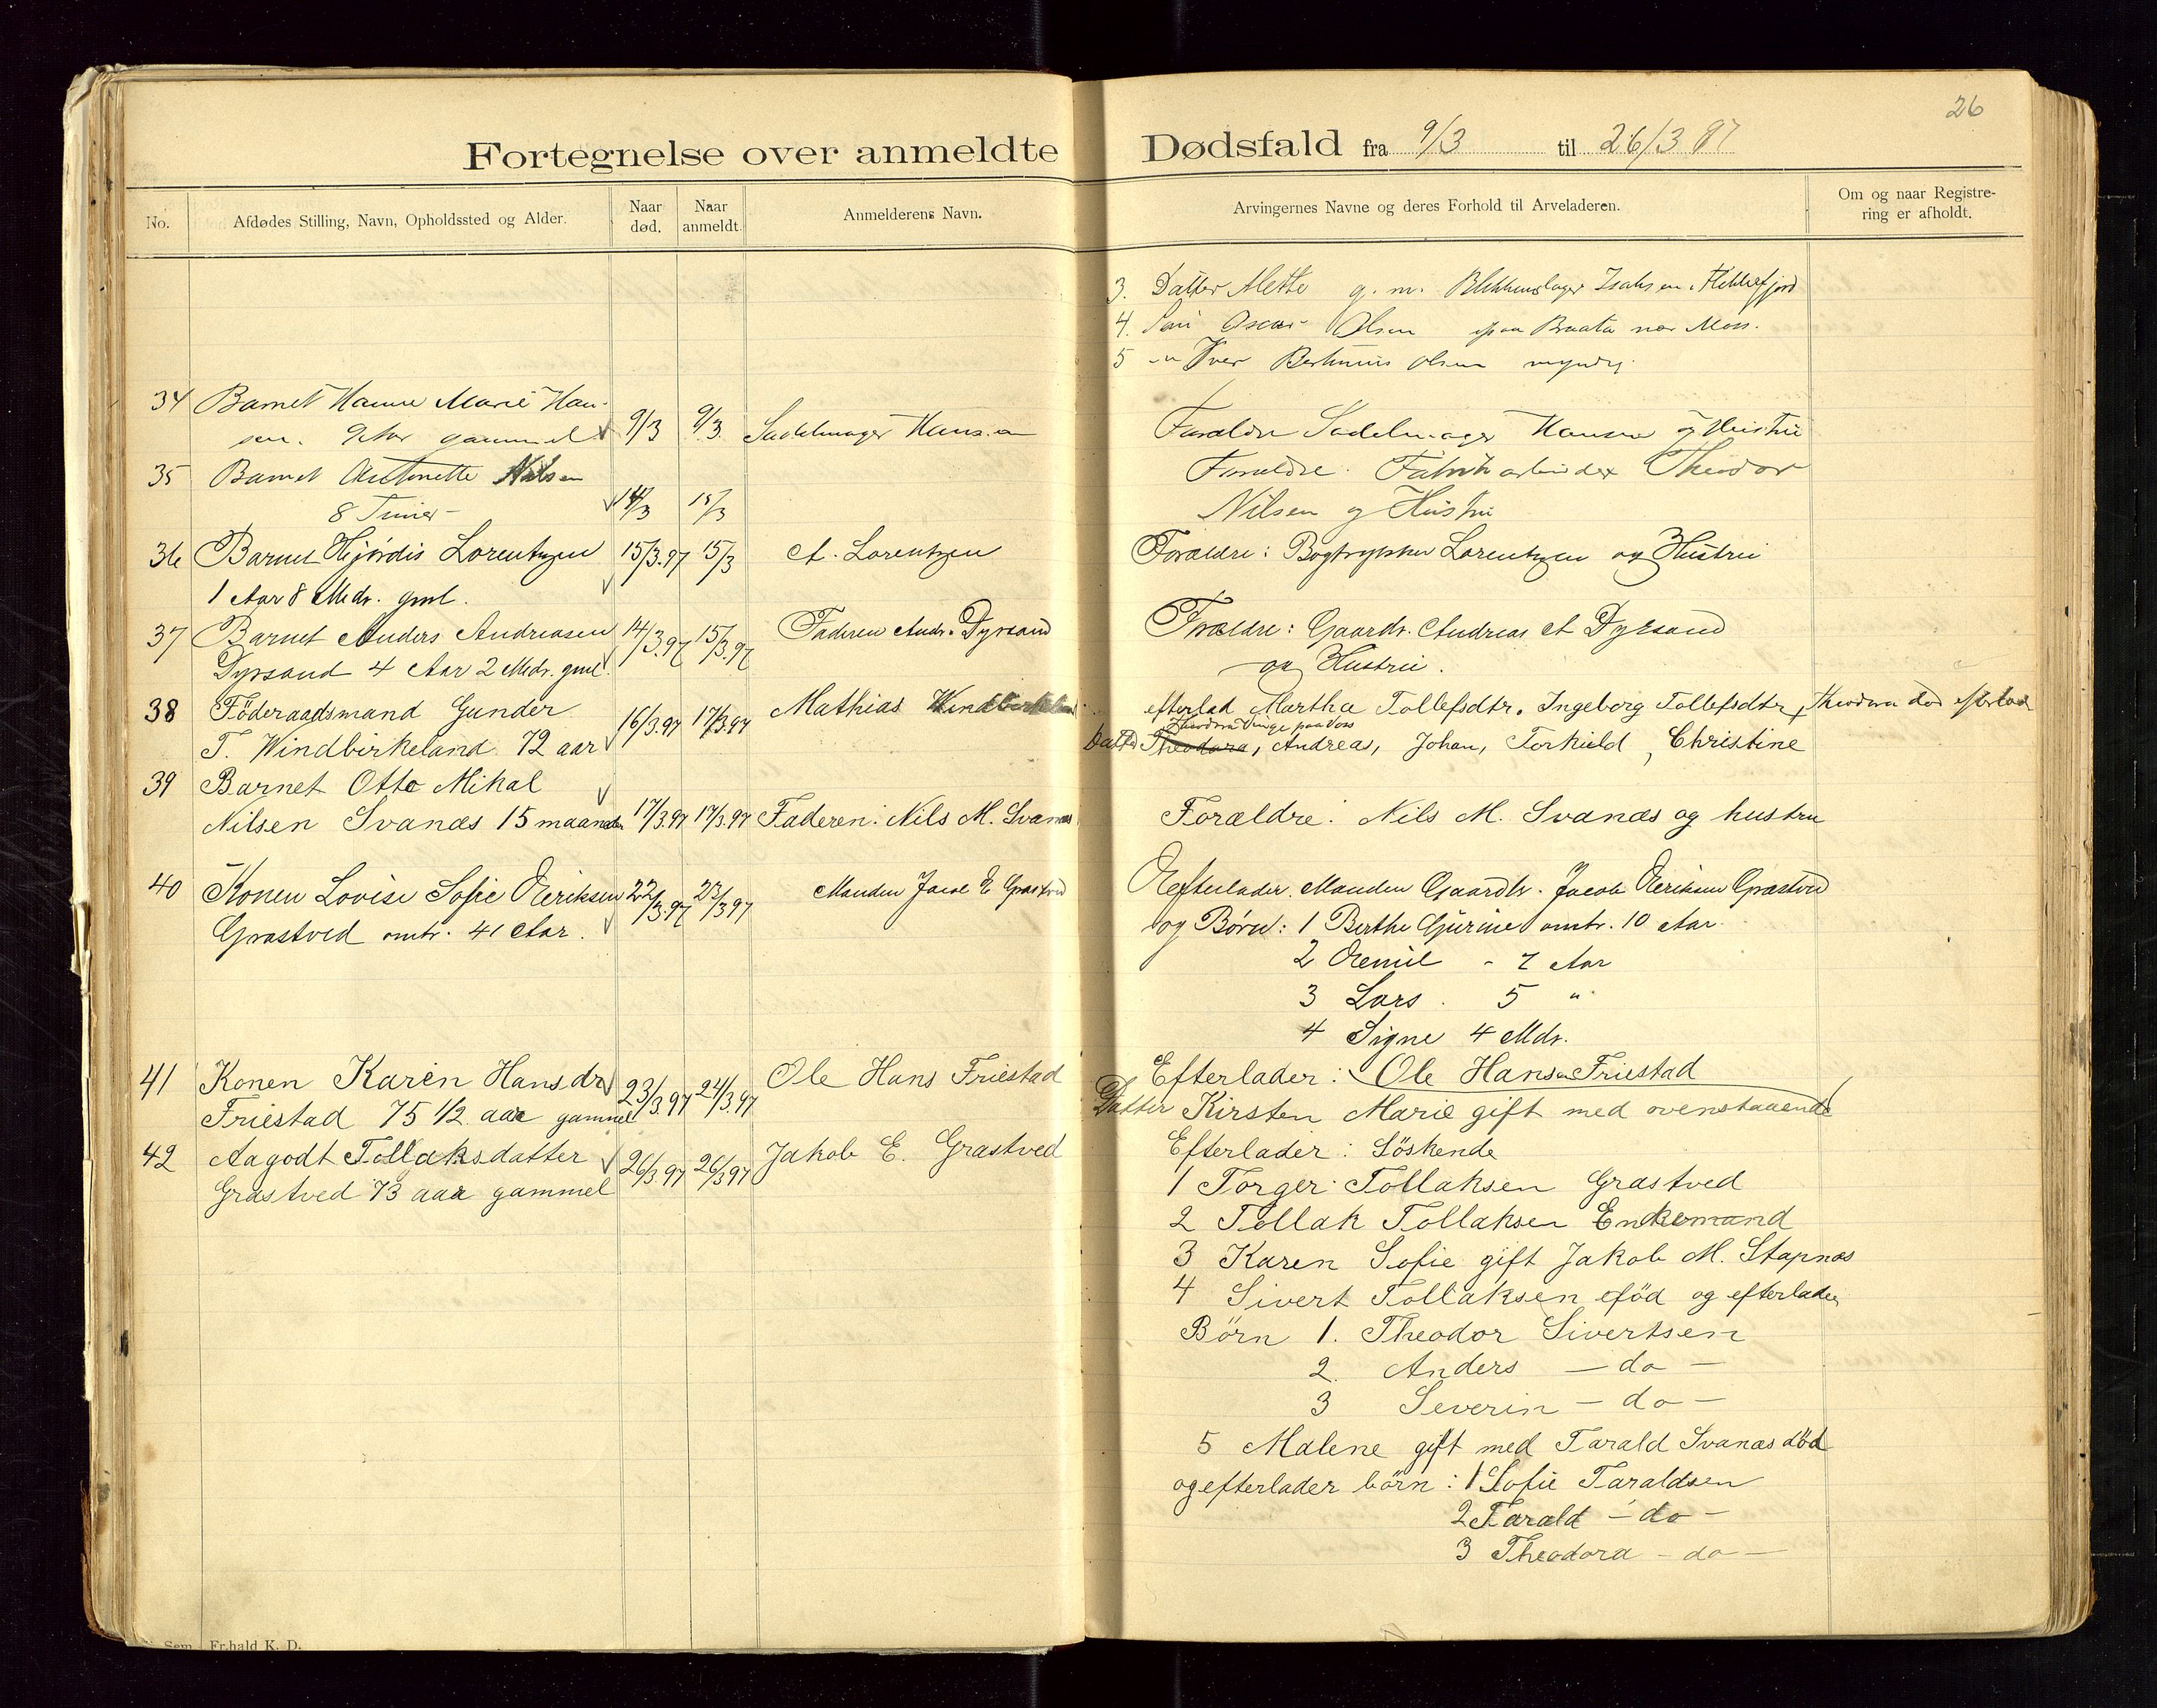 26
Fortegnelse over anmeldte Dødsfald fra 9/3 til 26/3 97
No.
Afdødes Stilling, Navn, Opholdssted og Alder.
Naar død.
Naar anmeldt.
Anmelderens Navn.
Arvingernes Navne og deres Forhold til Arveladeren.
Om og naar Registre-
ring er afholdt.
3. Datter Mette g. m. Blikkenslager Isaksen i Flekkefjord
4. Søn Oscar Olsen paa Braata nær Moss.
5 -"- Iver Olsen myndig.
34 Barnet Hanne Marie Han-
sen. gammel 9/3 9/3 Sadelmager Hansen
Forældre Sadelmager Hansen og Hustru
35 Barnet Antonette Nilsen
8 Timer 14/3 15/3
Forældre. Fabrikarbeider Theodor
Nilsen og Hustru
36 Barnet Hjørdis Lorentzen 15/3.97 15/3 A. Lorentzen
1 Aar 8 Mdr. gml.
Forældre: Bogtrykker Lorentzen og Hustru
37 Barnet Anders Andreasen 14/3.97 15/3.97 Faderen Andr. Dyrsand
Dyrsand 4 Aar 2 Mdr. gml.
Forældre: Gaardbr. Andreas A Dyrsand
og Hustru.
38 Föderaadsmand Gunder 16/3.97 17/3.97 Mathias Windbirkeland
T. Windbirkeland 72 aar
efterlad Martha Tollefsdtr. Ingeborg Tollefsdtr, Theodora død efterlad
Theodora Vinge paa Voss
Datter Theodora, Andreas, Johan, Torkield, Christine
39 Barnet Otto Mikal
Nilsen Svanæs 15 maaneder 17/3.97 17/3.97 Faderen: Nils M. Svanæs
Forældre: Nils M. Svanæs og hustru
40 Konen Lovise Sofie Eeriksen 22/3.97 23/3 97 Manden Jacob E Græstved
Græstved omtr. 41 Aar.
Eefterlader. Manden Gaardbr. Jacob Eeriksen Græstved
og Børn: 1 Berthe Gurine omtr. 10 Aar.
2 Eemil - 7 Aar
3 Lars. 5 "
4 Signe 4 Mdr.
41 Konen Karen Hansdr 23/3.97 24/3.97 Ole Hans Friestad
Friestad 75 1/2 aar gammel
Efterlader: Ole Hansen Friestad
Datter Kirsten Marie gift med ovenstaaende
42 Aagodt Tollaksdatter 26/3.97 26/3 97 Jakob E. Græstved
Græstved 73 aar gammel
Efterlader: Söskende
1 Torger Tollaksen Græstved
2 Tollak Tollaksen Enkemand
3 Karen Sofie gift Jakob M. Stapnæs
4 Sivert Tollaksen död og efterlader
Börn 1. Theodor Sivertsen
2. Anders — do —
3 Severin — do —
5 Malene gift med Tarald Svanæs död
og efterlader börn: 1 Sofie Taraldsen
2 Tarald — do —
3 Theodora — do —
Sem Fr.hald K. D.